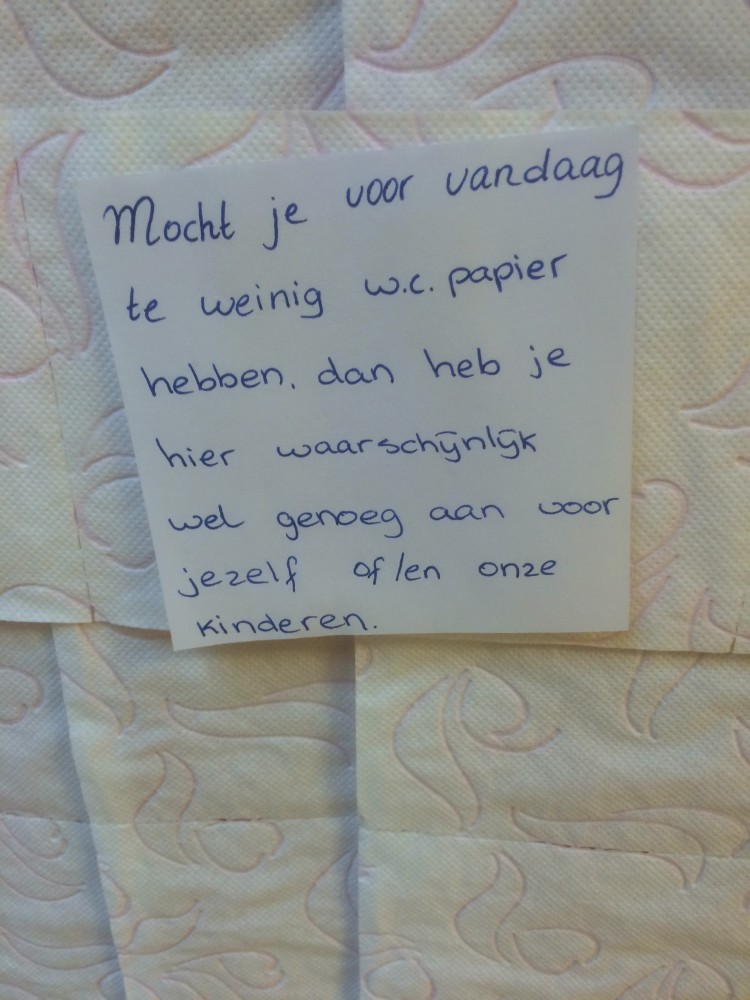 Mocht je voor vandaag
te weinig w.c. papier
hebben, dan heb je
hier waarschijnlijk
wel genoeg aan voor
jezelf of/en onze
kinderen.